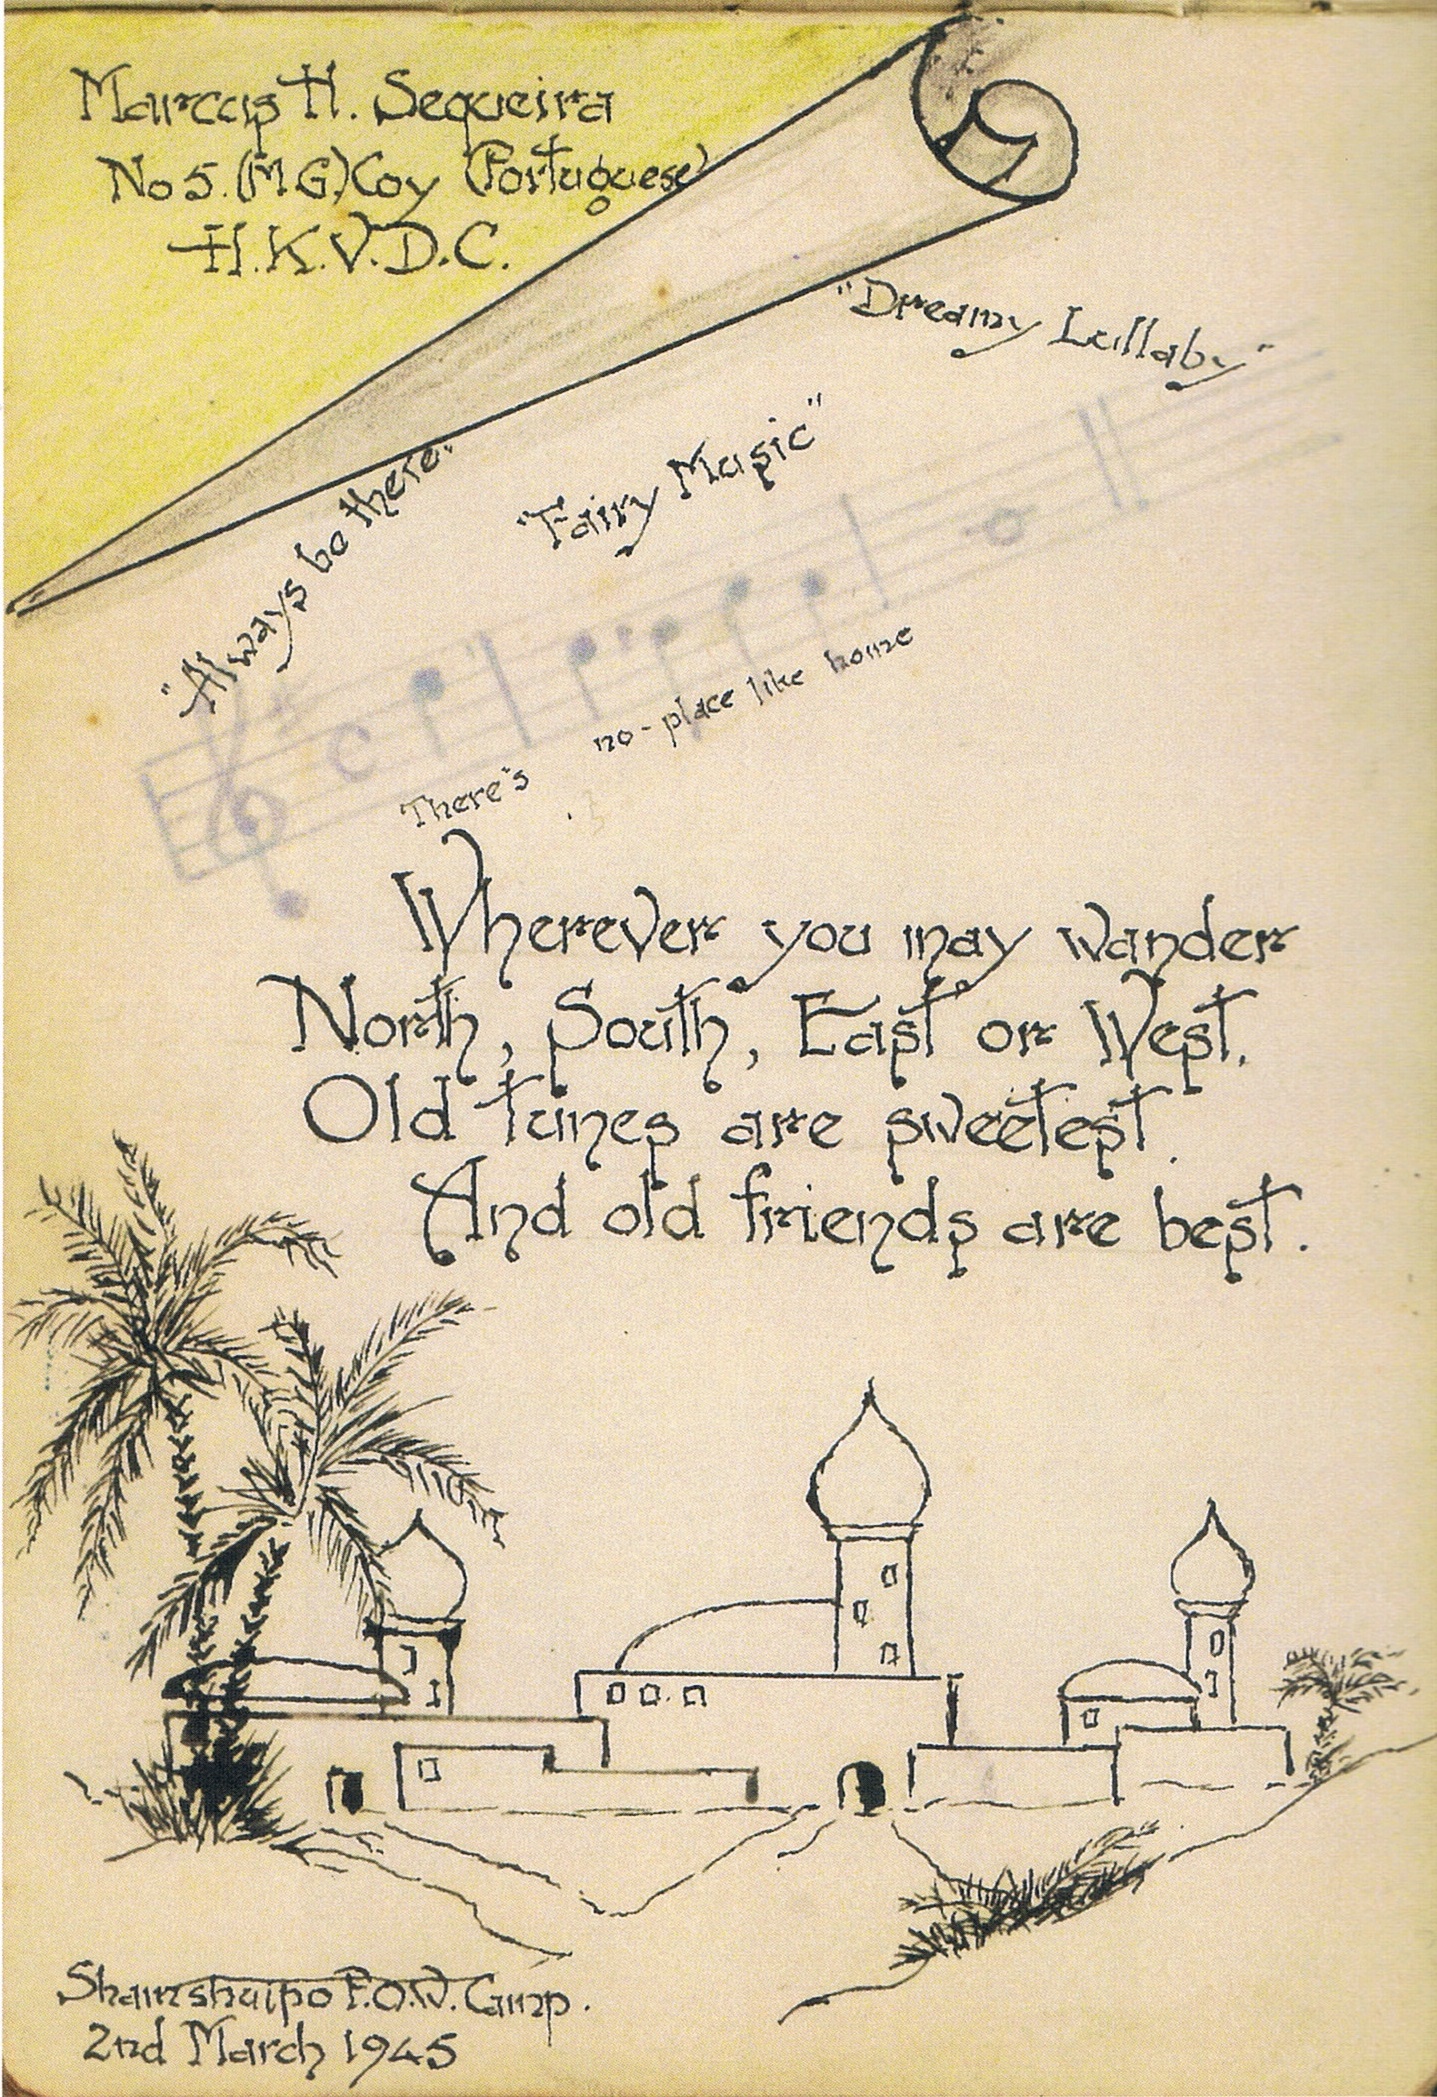 Marcus H. Sequeira
No 5. (M.G.) Coy (Portuguese)
H.K.V.D.C.
"Dreamy Lullaby"
"Fairy Music"
"Always be there"
There's no-place like home
Wherever you may wander
North, South, East or West.
Old tunes are sweetest.
And old friends are best.
Shamshuipo P.O.W. Camp.
2nd March 1945